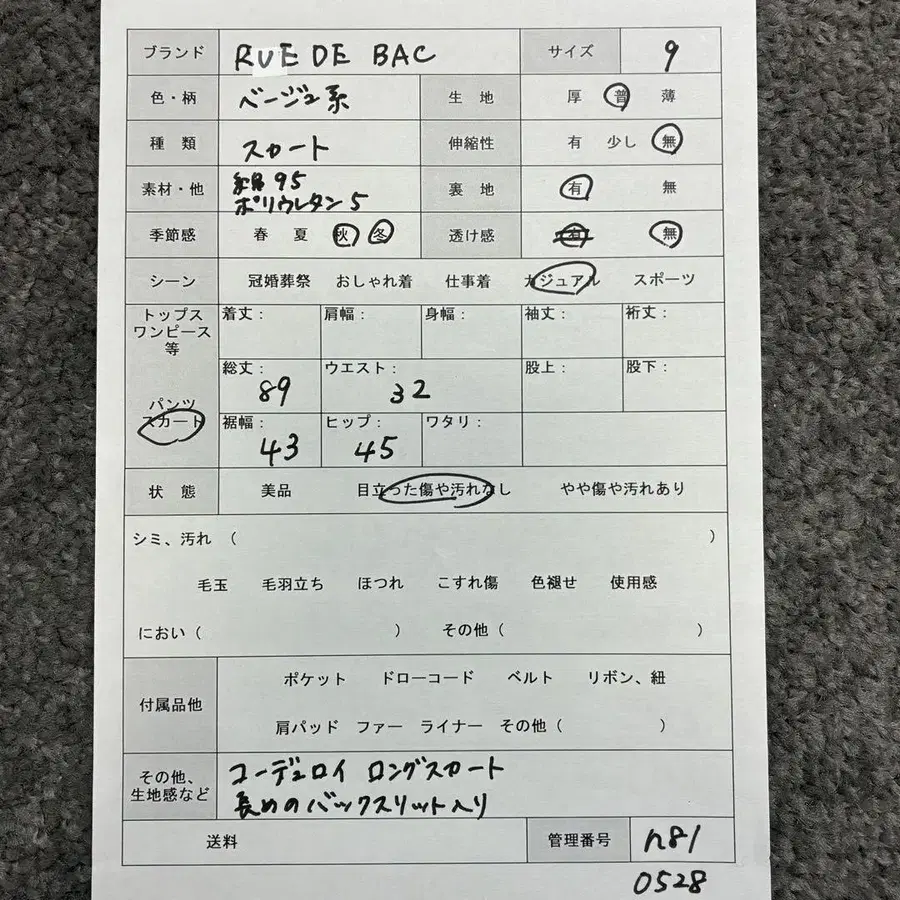 ブランド RUE DE BAC サイズ 9
色・柄 ベージュ系 生 地 厚 普 薄
種 類 スカート 伸縮性 有 少し 無
素材・他 綿 95 裏 地 有 無
ポリウレタン 5
季節感 春 夏 秋 冬 透け感 有 無
シーン 冠婚葬祭 おしゃれ着 仕事着 カジュアル スポーツ
トップス 着丈： 肩幅： 身幅： 袖丈： 裄丈：
ワンピース
等
総丈： ウエスト： 股上： 股下：
89 32
パンツ
スカート 裾幅： ヒップ： ワタリ：
43 45
状 態 美品 目立った傷や汚れなし やや傷や汚れあり
シミ、汚れ （ ）
毛玉 毛羽立ち ほつれ こすれ傷 色褪せ 使用感
におい（ ） その他（ ）
付属品他 ポケット ドローコード ベルト リボン、紐
肩パッド ファー ライナー その他（ ）
その他、 コーデュロイ ロングスカート
生地感など 長めのバックスリット入り
送料 管理番号 n81
0528